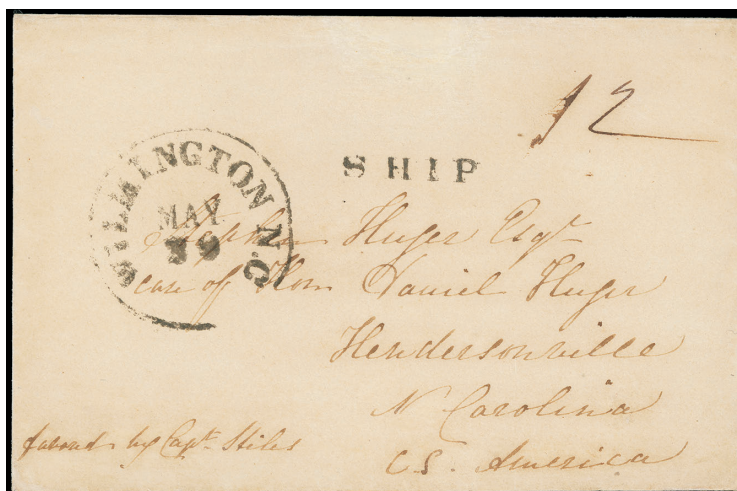 12
SHIP
WILMINGTON N.C.
MAY
Stephen Huger Esqr
care of Hon Daniel Huger
Hendersonville
N Carolina
C.S. America
favored by Capt. Stiles